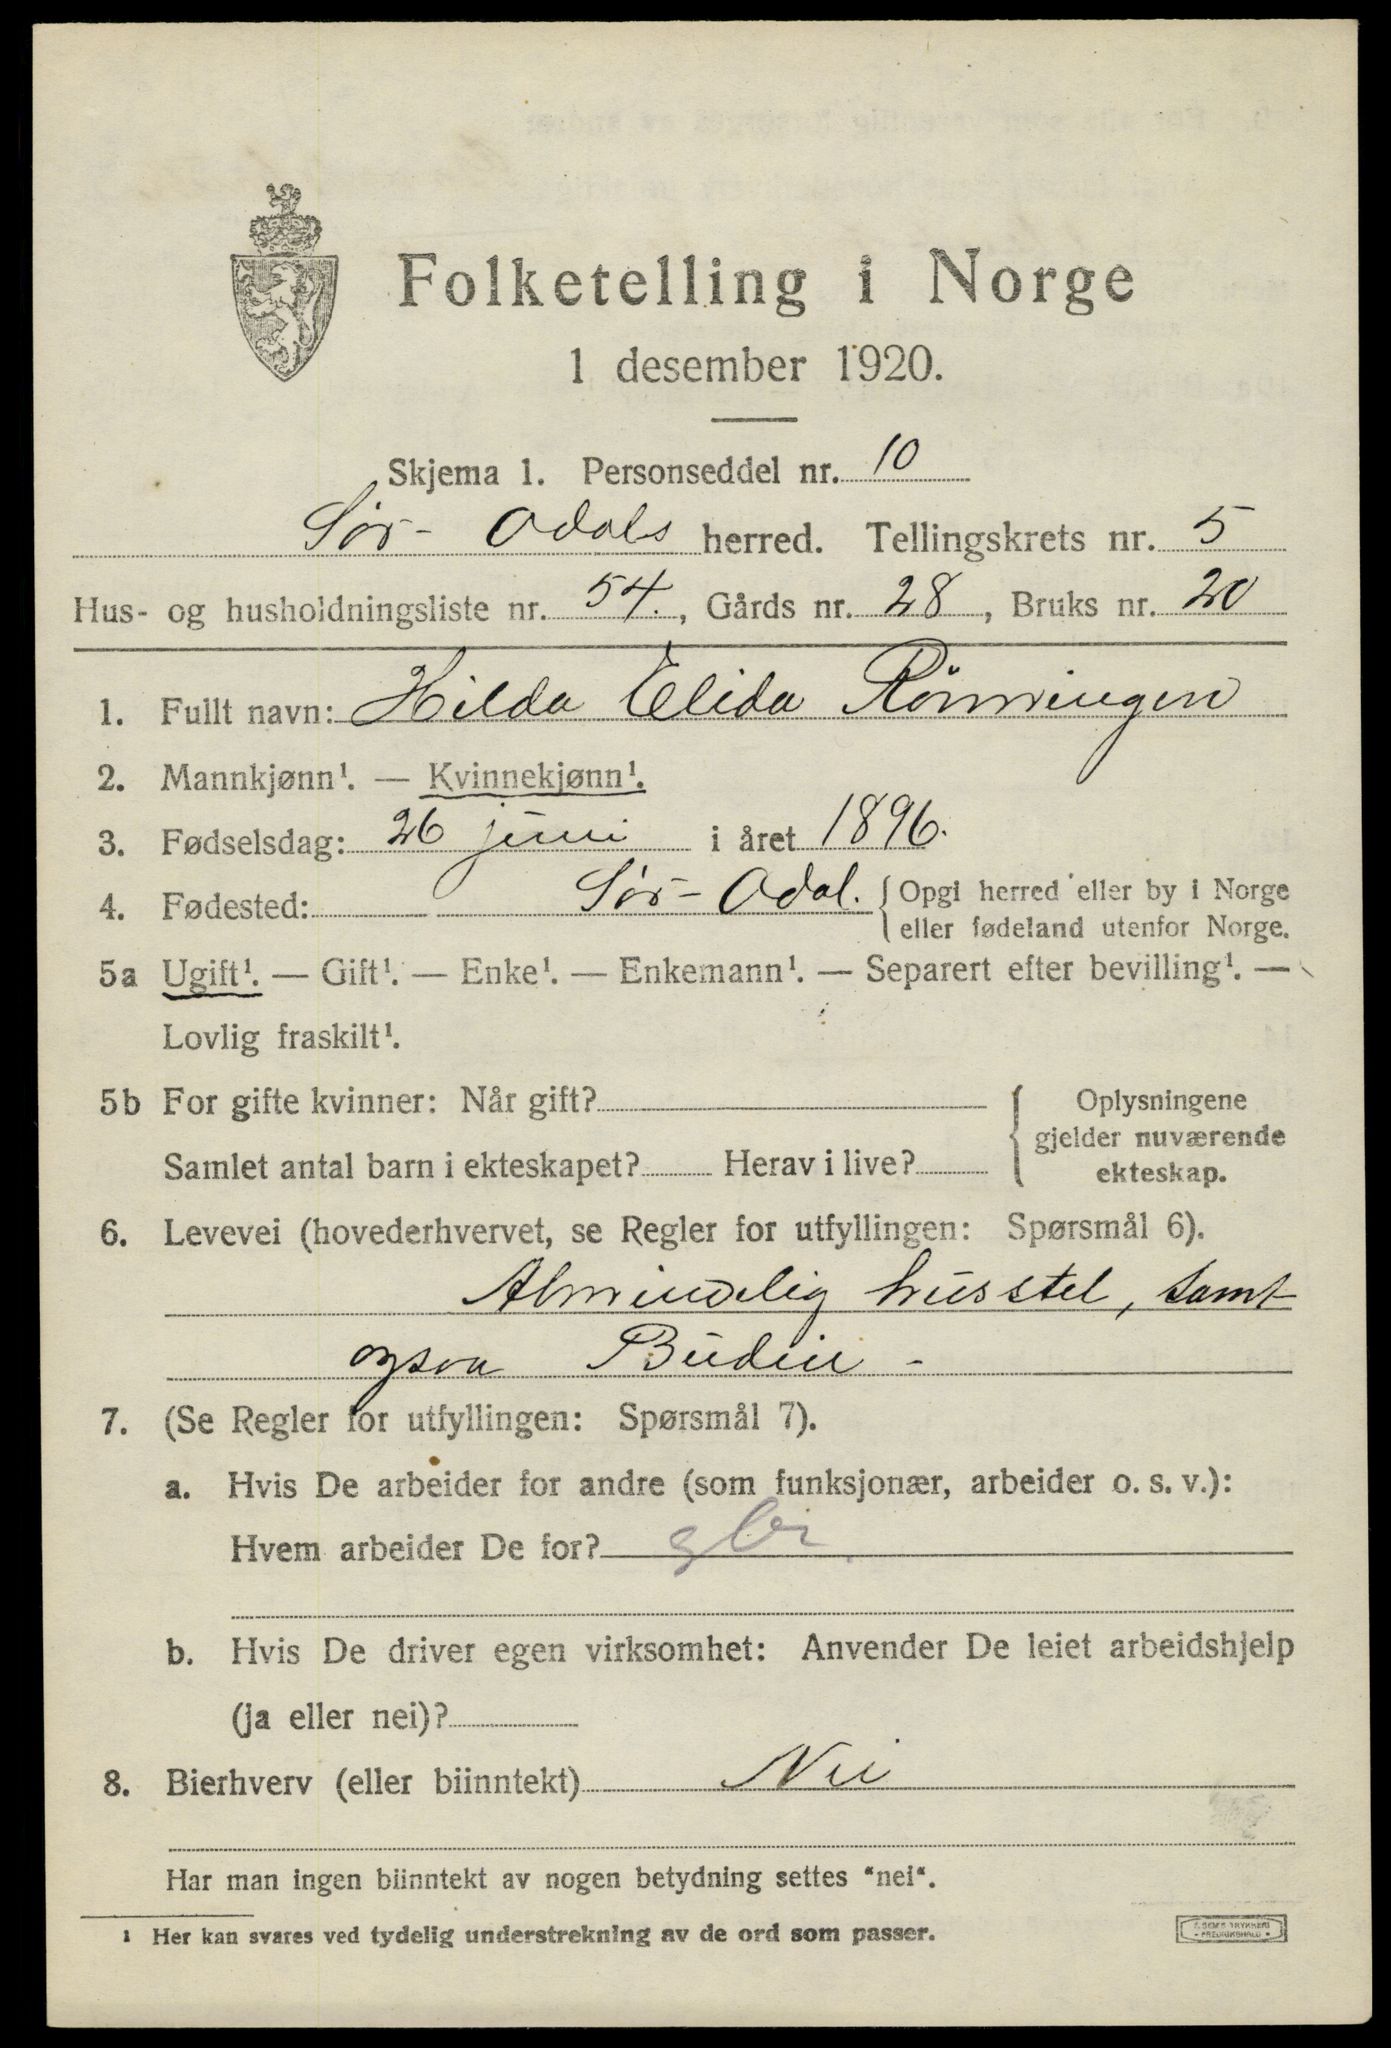 Folketelling i Norge
1 desember 1920.
Skjema 1. Personseddel nr. 10
Sør-Odals herred. Tellingskrets nr. 5
Hus- og husholdningsliste nr. 54., Gårds nr. 28, Bruks nr. 20
1. Fullt navn: Hilda Elida Rönningen
2. Mannkjønn¹. — Kvinnekjønn¹.
3. Fødselsdag: 26 juni i året 1896.
4. Fødested: Sør-Odal. { Opgi herred eller by i Norge
eller fødeland utenfor Norge.
5a Ugift¹. — Gift¹. — Enke¹. — Enkemann¹. — Separert efter bevilling¹. —
Lovlig fraskilt¹.
5b For gifte kvinner: Når gift? { Oplysningene
gjelder nuværende
Samlet antal barn i ekteskapet? Herav i live? ekteskap.
6. Levevei (hovederhvervet, se Regler for utfyllingen: Spørsmål 6).
Almindelig husstel, samt
ogsaa Budeie -
7. (Se Regler for utfyllingen: Spørsmål 7).
a. Hvis De arbeider for andre (som funksjonær, arbeider o. s. v.):
Hvem arbeider De for?
b. Hvis De driver egen virksomhet: Anvender De leiet arbeidshjelp
(ja eller nei)?
8. Bierhverv (eller biinntekt) Nei
Har man ingen biinntekt av nogen betydning settes "nei".
¹ Her kan svares ved tydelig understrekning av de ord som passer.
TRYKKERI
FREDRIKSHALD